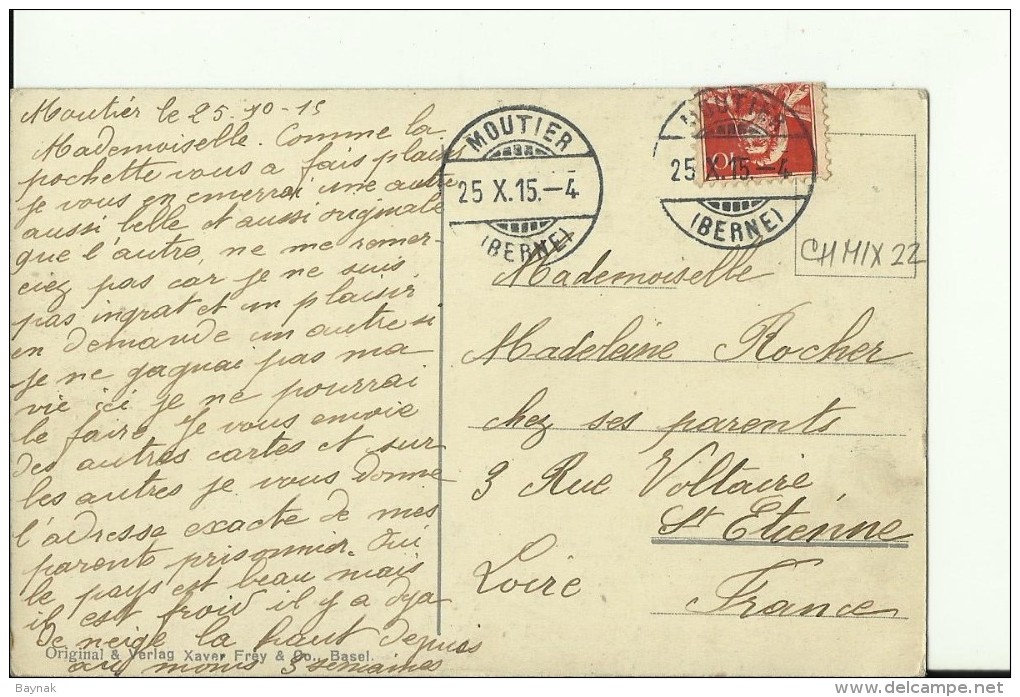 Moutier le 25-10-15
Mademoiselle. Comme la
pochette vous a fais plaisir
je vous en emerrai une autre
aussi belle et aussi originale
que l'autre, ne me remer-
ciez pas car je ne suis
pas ingrat et un plaisir
en demande un autre si
je ne gagnai pas ma
vie ici je ne pourrai
le faire Je vous envoie
des autres cartes et sur
les autres je vous donne
l'adresse exacte de mes
parents prisonnier. Oui
le pays est beau mais
il est froid il y a deja
de neige la haut depuis
au moins 3 semaines
Original & Verlag Xaver Frey & Co., Basel.
MOUTIER
25 X.15.-4
(BERNE)
MOUTIER
25 X.15.-4
(BERNE)
10
CH MIX 22
Mademoiselle
Madeleine Rocher
chez ses parents
3 Rue Voltaire
St Etienne
Loire
France
Baynak
delcampe.net